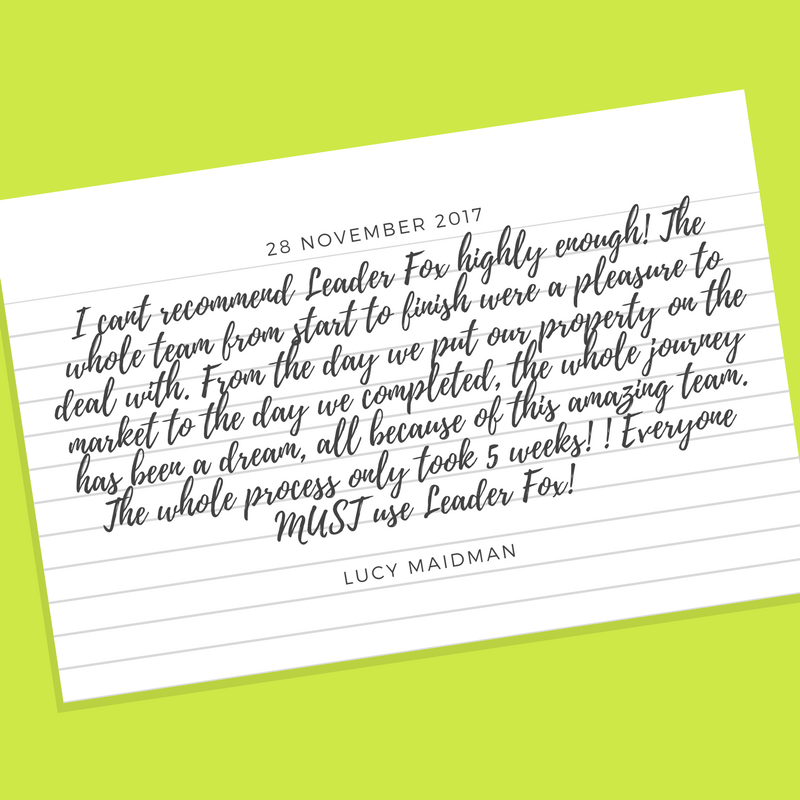 28 NOVEMBER 2017
I cant recommend Leader Fox highly enough! The
whole team from start to finish were a pleasure to
deal with. From the day we put our property on the
market to the day we completed, the whole journey
has been a dream, all because of this amazing team.
The whole process only took 5 weeks! ! Everyone
MUST use Leader Fox!
LUCY MAIDMAN